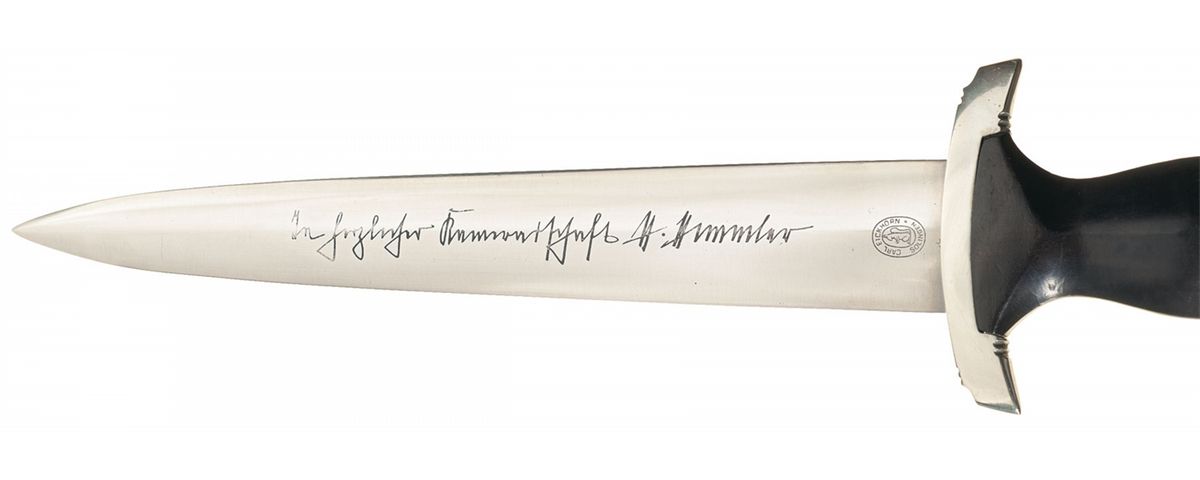 In herzlicher Kameradschaft H. Himmler
CARL EICKHORN * SOLINGEN